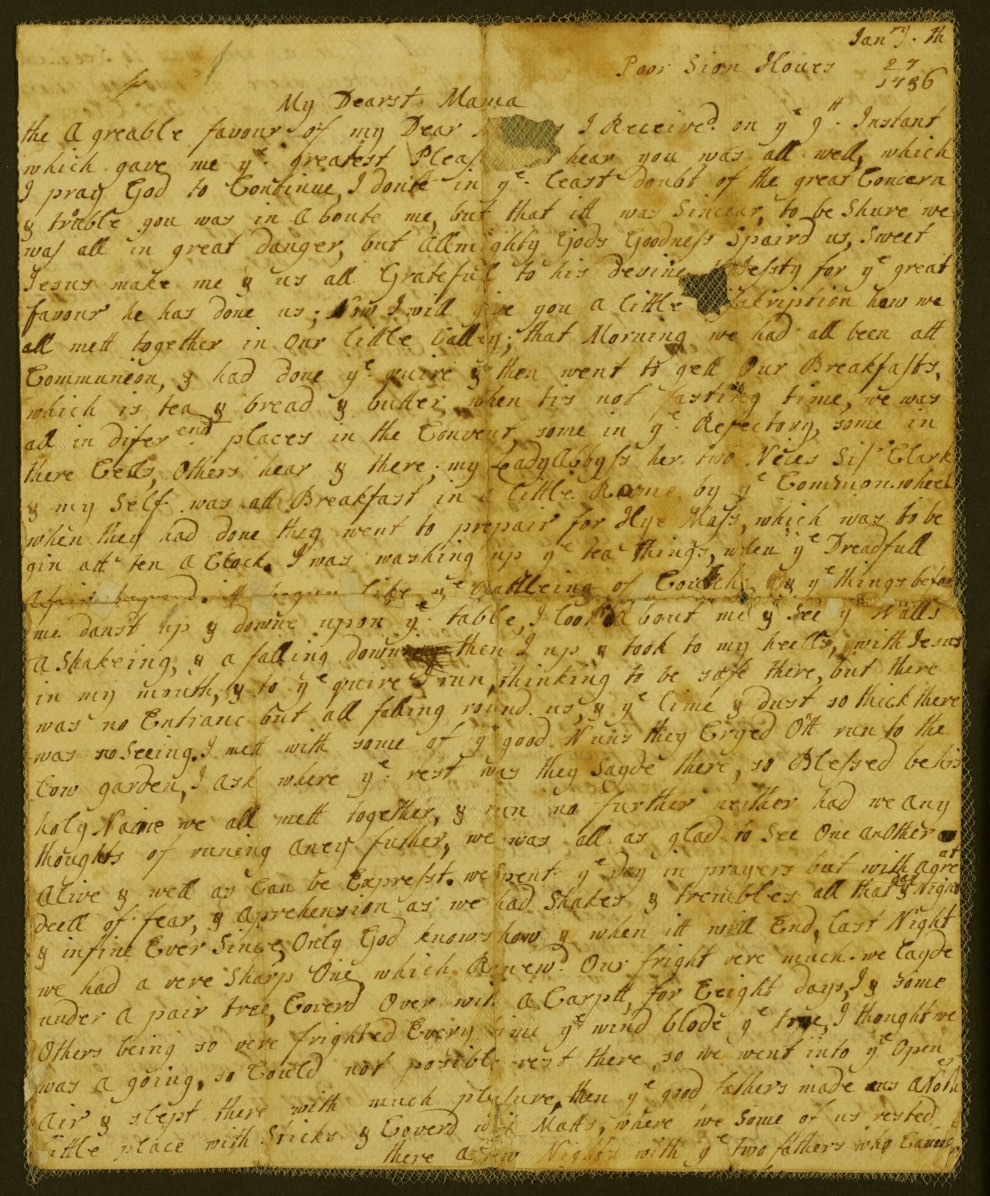 Janry. th
Poor Sion Houes 27
1756
My Dearst Mama
the Agreable favour of my Dear I Received. on ye. 9th. Instant
which gave me ye. greatest Pleas hear you was all well, which
I pray God to Continue, I donte in ye. least doubt of the great Concern
& truble you was in aboute me, but that itt was Sincear, to be Shure we
was all in great danger, but Allmighty Gods Goodness Spaird us, Sweet
Jesus make me & us all Gratefull to his devine for ye great
favour he has done us; Now I will give you a little how we
all mett together in Our little Valley; that Morning we had all been att
Communion, & had done ye. quire & then went to gett Our Breakfasts,
which is tea & bread & butter when tis not fasting time, we was
all in diferent places in the Convent, some in ye. Refectory, some in
there Cells, Others hear & there; my Lady Abbyss her two Neies Sisr Clark
& my Self was att Breakfast in a little Rome by ye Common wheel
when they had done they went to prepair for Hye Mass, which was to be
gin att ten a Clock. I was washing up ye tea things, when ye Dreadfull
Afair hapend. itt began like ye Rattleing of Coaches & ye things befor
me danst up & downe upon ye. table, I look'd about me & See ye Walls
a Shakeing, & a falling down then I up & took to my heells, with Jesus
in my mouth, & to ye quire I run, thinking to be safe there, but there
was no Entranc but all falling round us, & ye lime & dust so thick there
was no Seeing. I mett with some of ye good Nuns they Cryed Ott run to the
low garden, I ask where ye. rest was they Sayde there, so Blessed be his
holy Name we all mett together, & run no further neither had we any
thoughts of runing aney futher, we was all as glad to See One another
Alive & well as Can be Exprest. we spent ye day in prayers but with a great
deell of fear, & Aprehension as we had Shakes & trembles all that day & Night
& infine Ever Since, Only God knows how & when itt will End, last Night
we had a vere Sharp One which Renewd. Our fright vere much. we layde
under a pair tree, Coverd Over with a Carpit, for Eeight days, I & some
Others being so vere frighted Every time ye wind blode ye tree, I thought we
was a going, so Could not posible rest there, so we went into ye Open
Air & slept there with much plesure, then ye good fathers made us a Noth
little place with Sticks & Coverd with Matts, where we some of us rested
there a few Nights with ye two fathers who